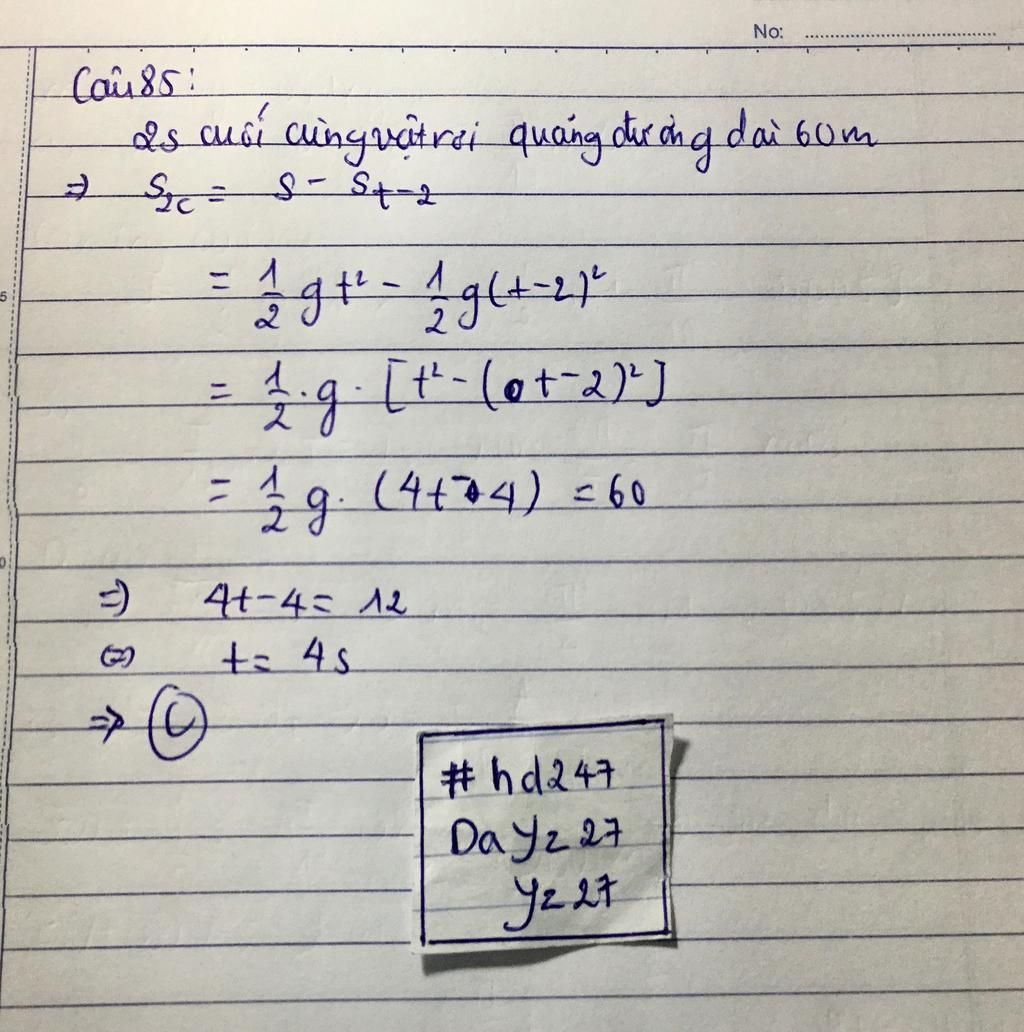 No:
Câu 85:
2s cuối cùng vật rơi quãng đường dài 60m
=> S_{2c} = S - S_{t-2}
= \frac{1}{2} g t² - \frac{1}{2} g(t-2)²
= \frac{1}{2} . g . [t² - (t-2)²]
= \frac{1}{2} g . (4t - 4) = 60
=> 4t - 4 = 12
<=> t = 4s
=> C
5
0
#hd247
Da Yz 27
Yz 27